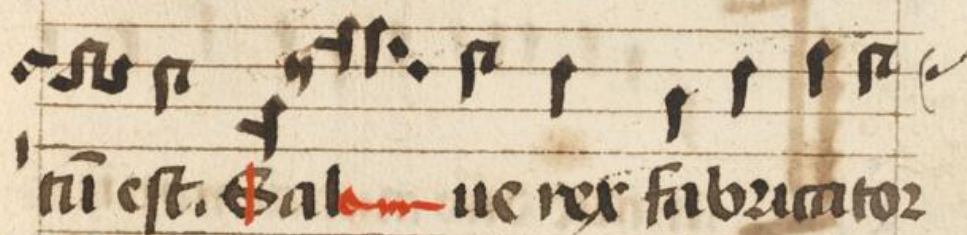 tū est. Sal ue rex fabricator